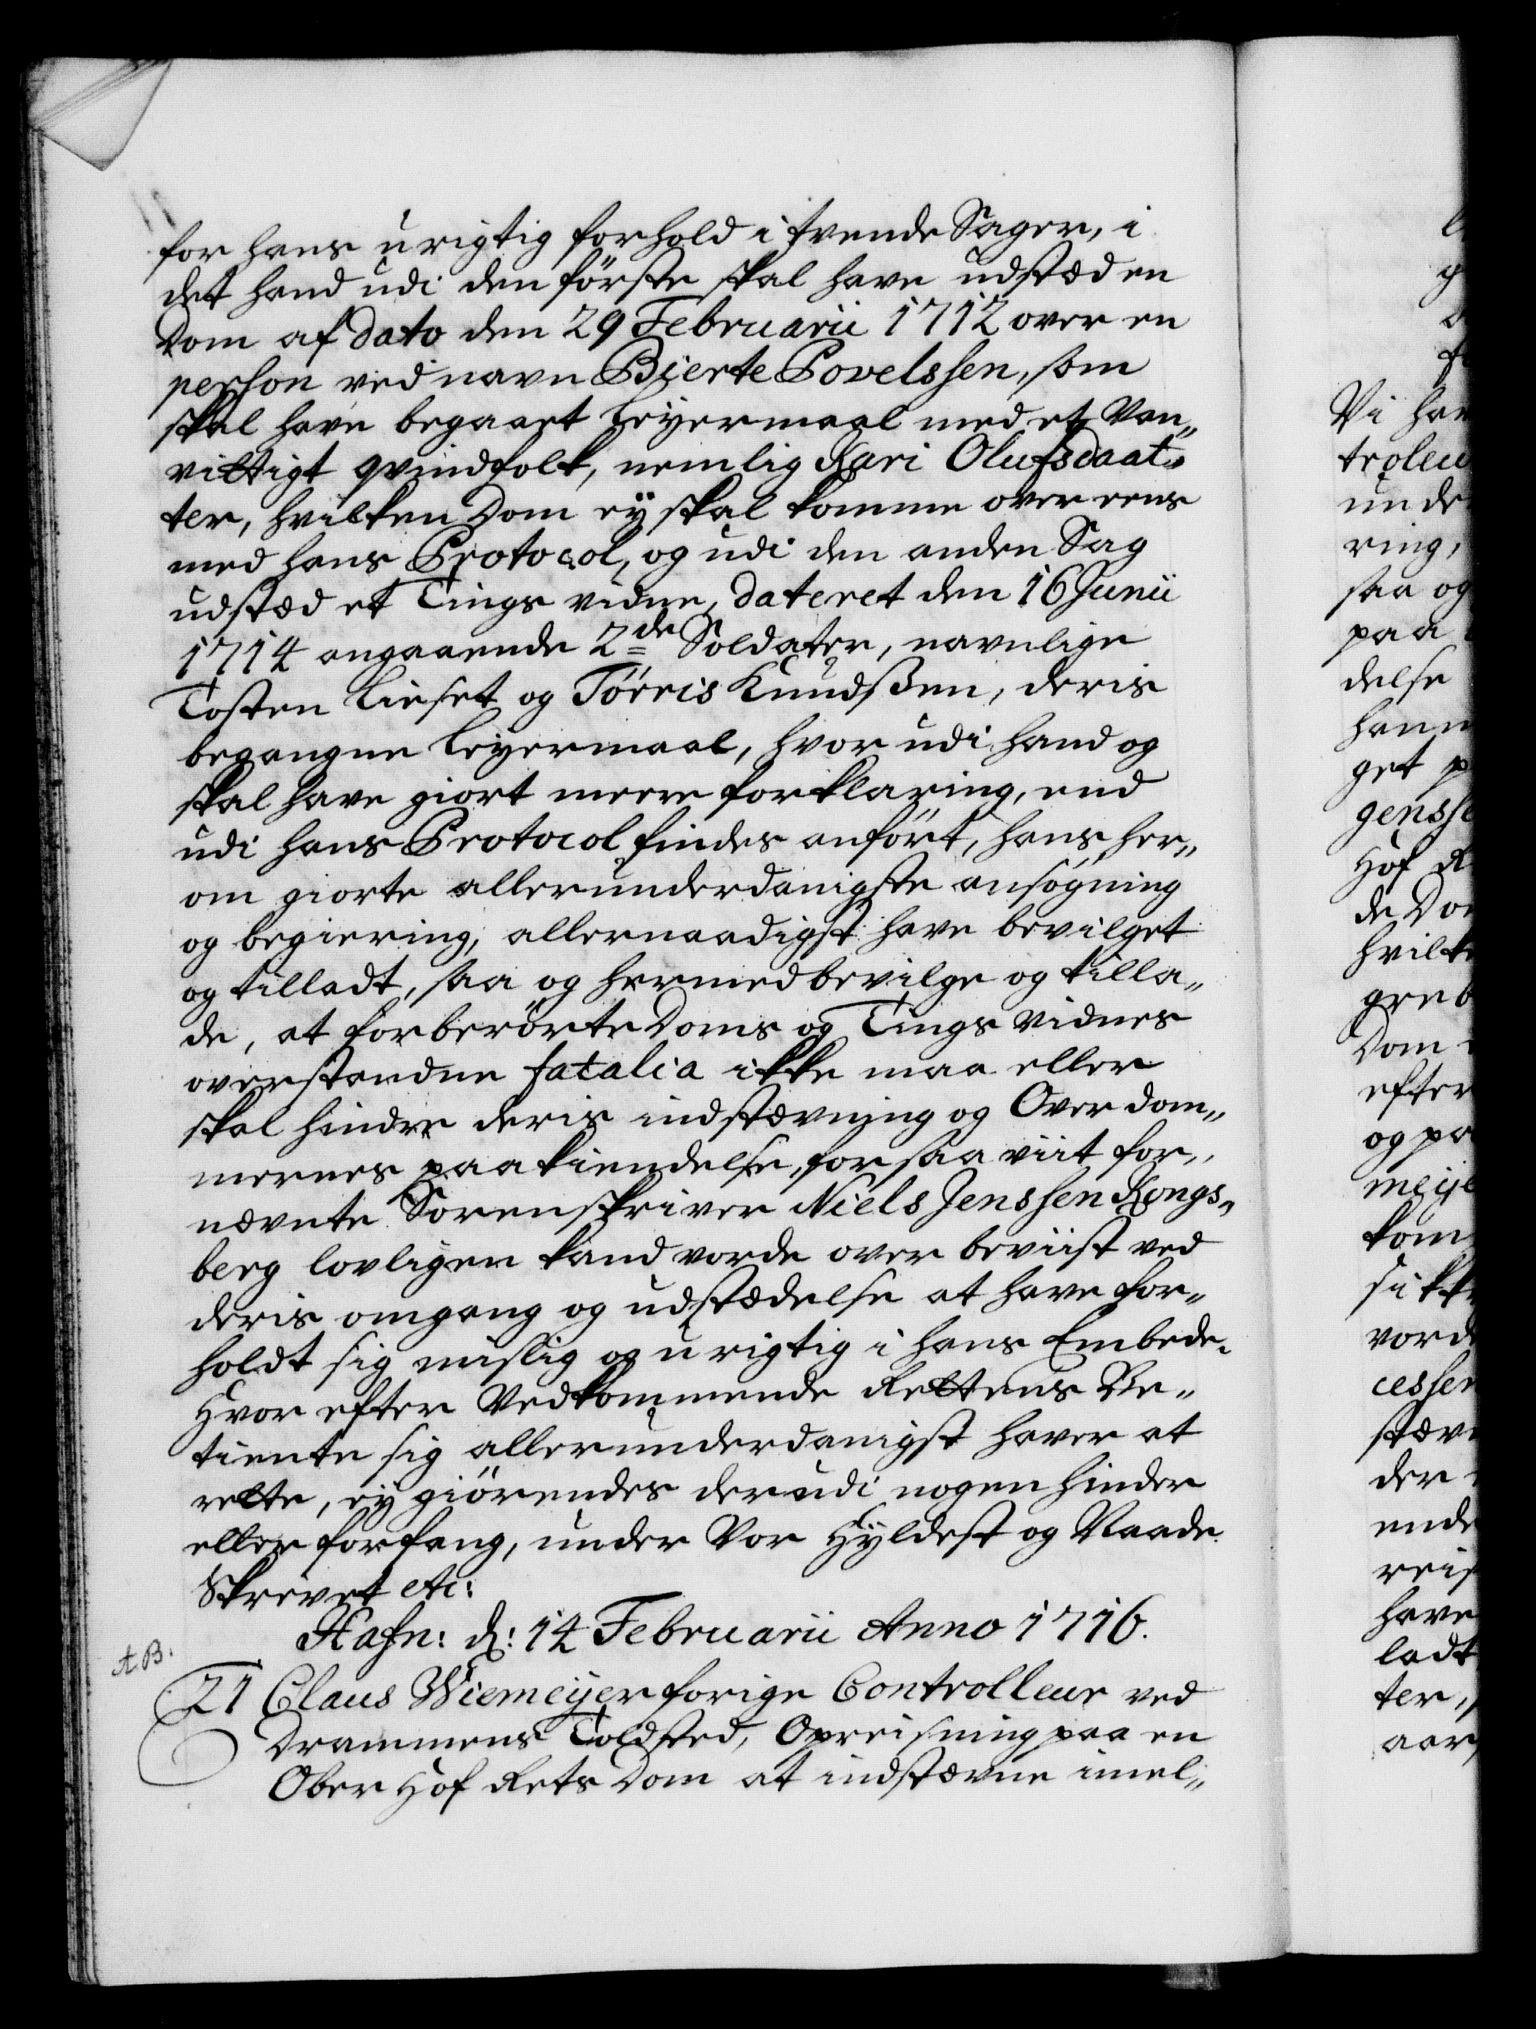 for hans urigtig forhold i tvende Sager, i
det hand udi den förste skal have udstæd en
Dom af dato den 29 Februarii 1712 over en
person ved navn Bierte Povelssen, som
skal have begaaet Leyermaal med et Van„
vittigt qvindfolk, nemlig Kari Olufsdaat„
ter, hvilken Dom ey skal komme over eens
med hans Protocol, og udi den anden Sag
udstæd et Tings vidne, dateret den 16 Junii
1714 angaaende 2de Soldater, navnlige
Tosten Lieset og Törris Knudsßen, deris
begangne Leyermaal, hvor udi hand og
skal have giort meere forklaring, end
udi hans Protocol findes anfört, hans her„
om giorte allerunderdanigste ansögning
og begiering, allernaadigst have bevilget
og tilladt, saa og hermed bevilge og tilla„
de, at forberörte Doms og Tings vidnes
overstandne fatalia ikke maa eller
skal hindre deris indstævning og Over dom„
mernes paakiendelse, forsaaviit for„
nævnte Sorenskriver Niels Jenssen Kongs„
berg lovligen kand vorde over beviist ved
deris omgang og udstædelse at have for„
holdt sig mislig og urigtig i hans Embede.
Hvor efter Vedkommende Rettens Be„
tiente sig allerunderdanigst haver at
rette, ey giörendes derudi nogen hinder
eller forfang, under Vor Hyldest og Naade.
Skrevet etc:
Hafn: d: 14 Februarii Anno 1716.
A.B.
21 Claus Wiemeyer forige Controlleur ved
Drammens Toldsted, Opreisning paa en
Ober Hof Rets Dom at indstævne imel„
Vi hav
troleu
unde
ring,
saa og
paa
delse
hann
get p
gensse
Hof R
de Do
hvilk
greb
Dom
efter
og pa
meye
kom
sikk
vord
cessen
stæv
der
ende
reis
have
ladt
ter,
aar